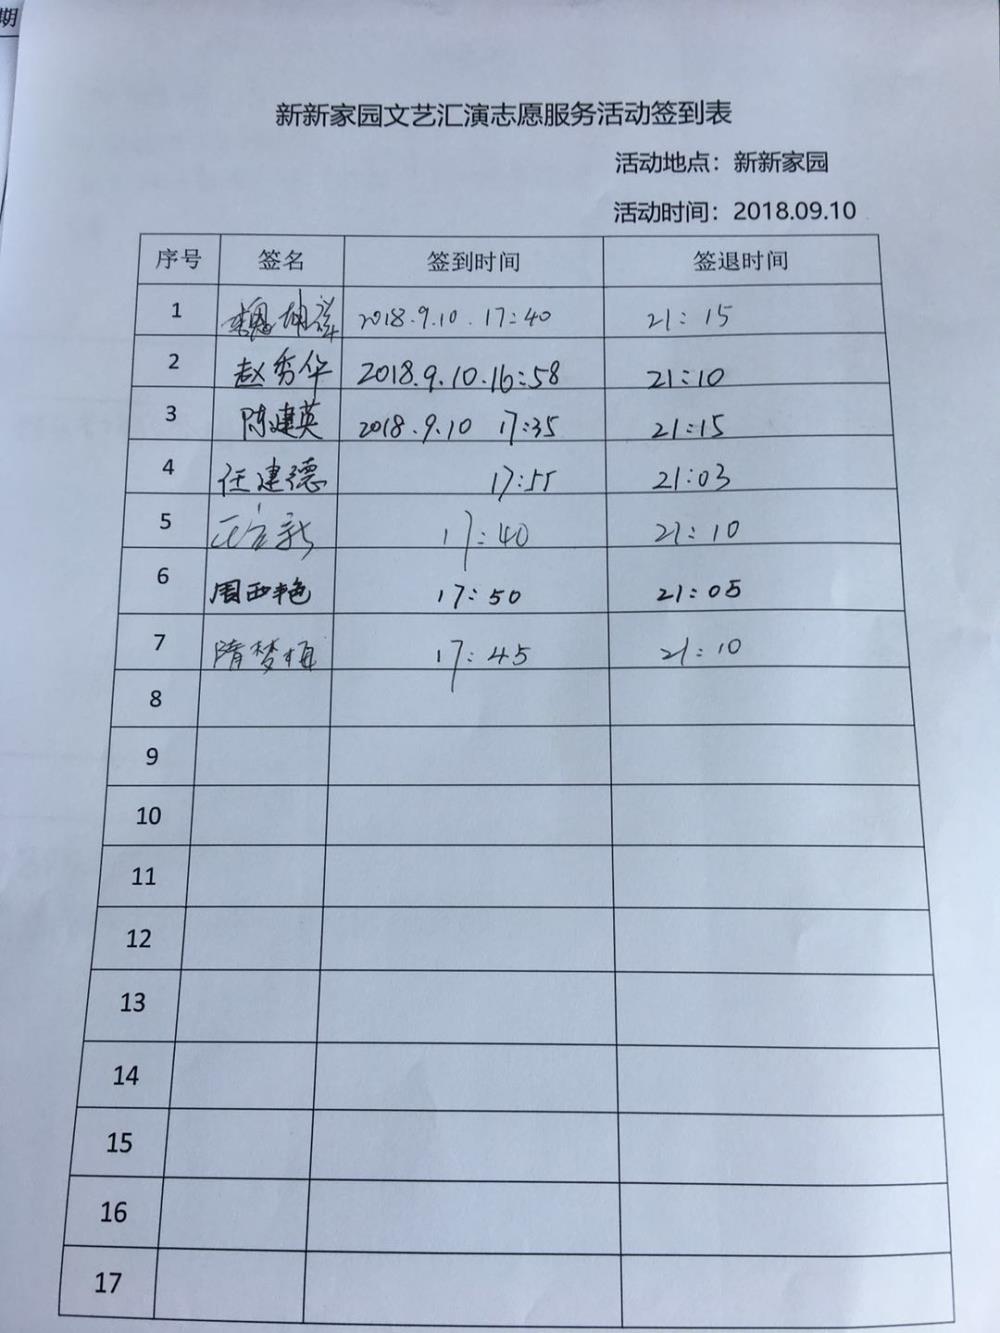 期
新新家园文艺汇演志愿服务活动签到表
活动地点：新新家园
活动时间：2018.09.10
序号 签名 签到时间 签退时间
1 魏坤 2018.9.10. 17:40 21:15
2 赵秀华 2018.9.10.16:58 21:10
3 陈建英 2018.9.10 17:35 21:15
4 任建德 17:55 21:03
5 17:40 21:10
6 周西艳 17:50 21:05
7 隋梦 17:45 21:10
8
9
10
11
12
13
14
15
16
17